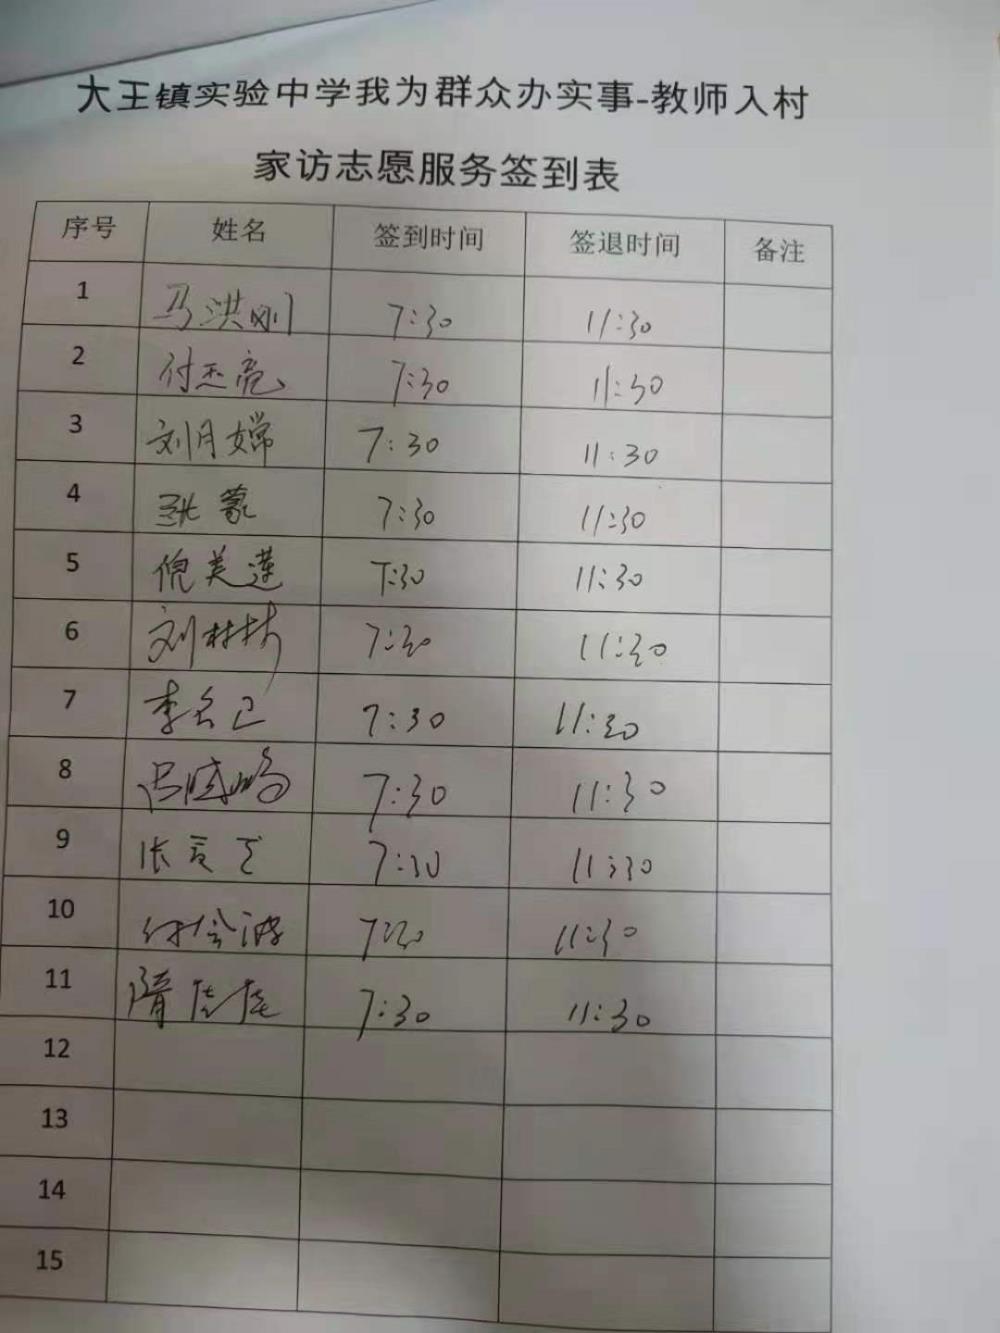 大王镇实验中学我为群众办实事-教师入村
家访志愿服务签到表
序号 姓名 签到时间 签退时间 备注
1 马洪刚 7:30 11:30
2 付杰亮 7:30 11:30
3 刘月嫦 7:30 11:30
4 张蒙 7:30 11:30
5 倪美莲 7:30 11:30
6 刘村 7:30 11:30
7 李 7:30 11:30
8 7:30 11:30
9 张 7:30 11:30
10 付 7:30 11:30
11 隋 7:30 11:30
12
13
14
15